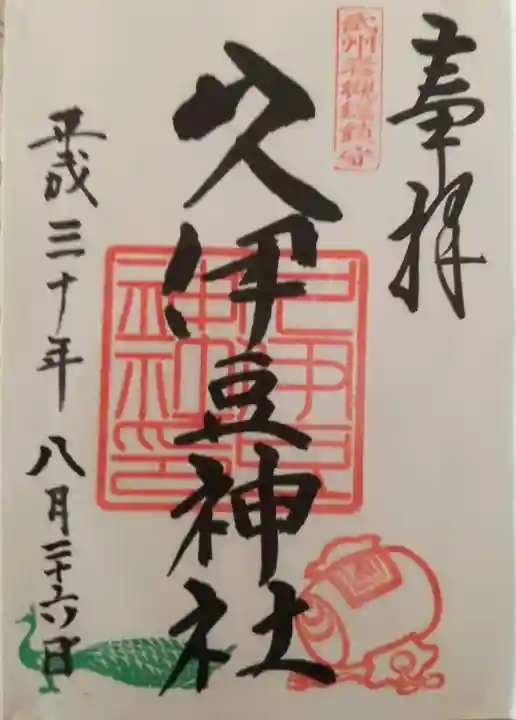 奉拝
武州岩槻総鎮守
久伊豆神社
平成三十年八月二十六日